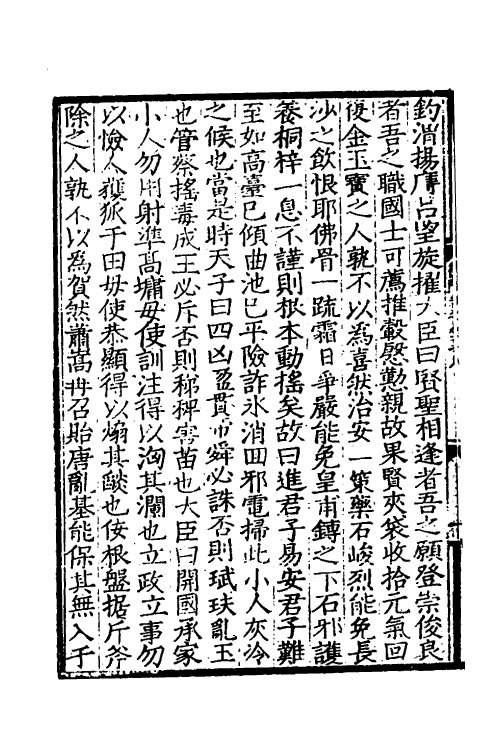 釣渭揚膺占望旋擢大臣曰賢聖相逢者吾之願登崇俊良
者吾之職國士可薦推轂慇懃親故果賢夾袋收拾元氣回
復金玉寶之人孰不以為喜然治安一策藥石峻烈能免長
沙之飲恨耶佛骨一疏霜日爭嚴能免皇甫鎛之下石邪護
養桐梓一息不謹則根本動搖矣故曰進君子易安君子難
至如高臺已傾曲池已平險詐氷消回邪電掃此小人灰冷
之候也當是時天子曰四凶盈貫帝舜必誅否則珷玞亂玉
也管蔡搖毒成王必斥否則稊稗害苗也大臣曰開國承家
小人勿用射準高墉毋使訓注得以洶其瀾也立政立事勿
以憸人獲狐于田毋使恭顯得以煽其燄也侫根盤据斤斧
除之人孰不以為賀然蕭嵩冉召貽唐亂基能保其無入于